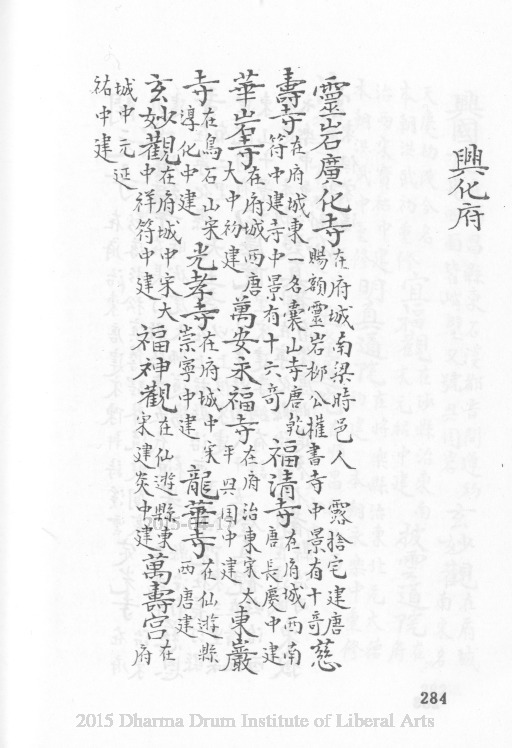 興化府
靈岩廣化寺在府城南梁時邑人 露捨宅建唐賜額靈岩柳公權書寺中景有十奇慈
壽寺在府城東一名囊山寺唐乾符中建寺中景有十六奇福清寺在府城西南唐長慶中建
華岩寺在府城西唐大中初建萬安永福寺在府治東宋太平興国中建東巖
寺在烏石山宋淳化中建光孝寺在府城中宋崇寧中建龍華寺在仙遊縣西唐建
玄妙觀在府城中宋大中祥符中建福神觀在仙遊縣東宋建炎中建萬壽宮在府
城中元延祐中建
284
2015 Dharma Drum Institute of Liberal Arts